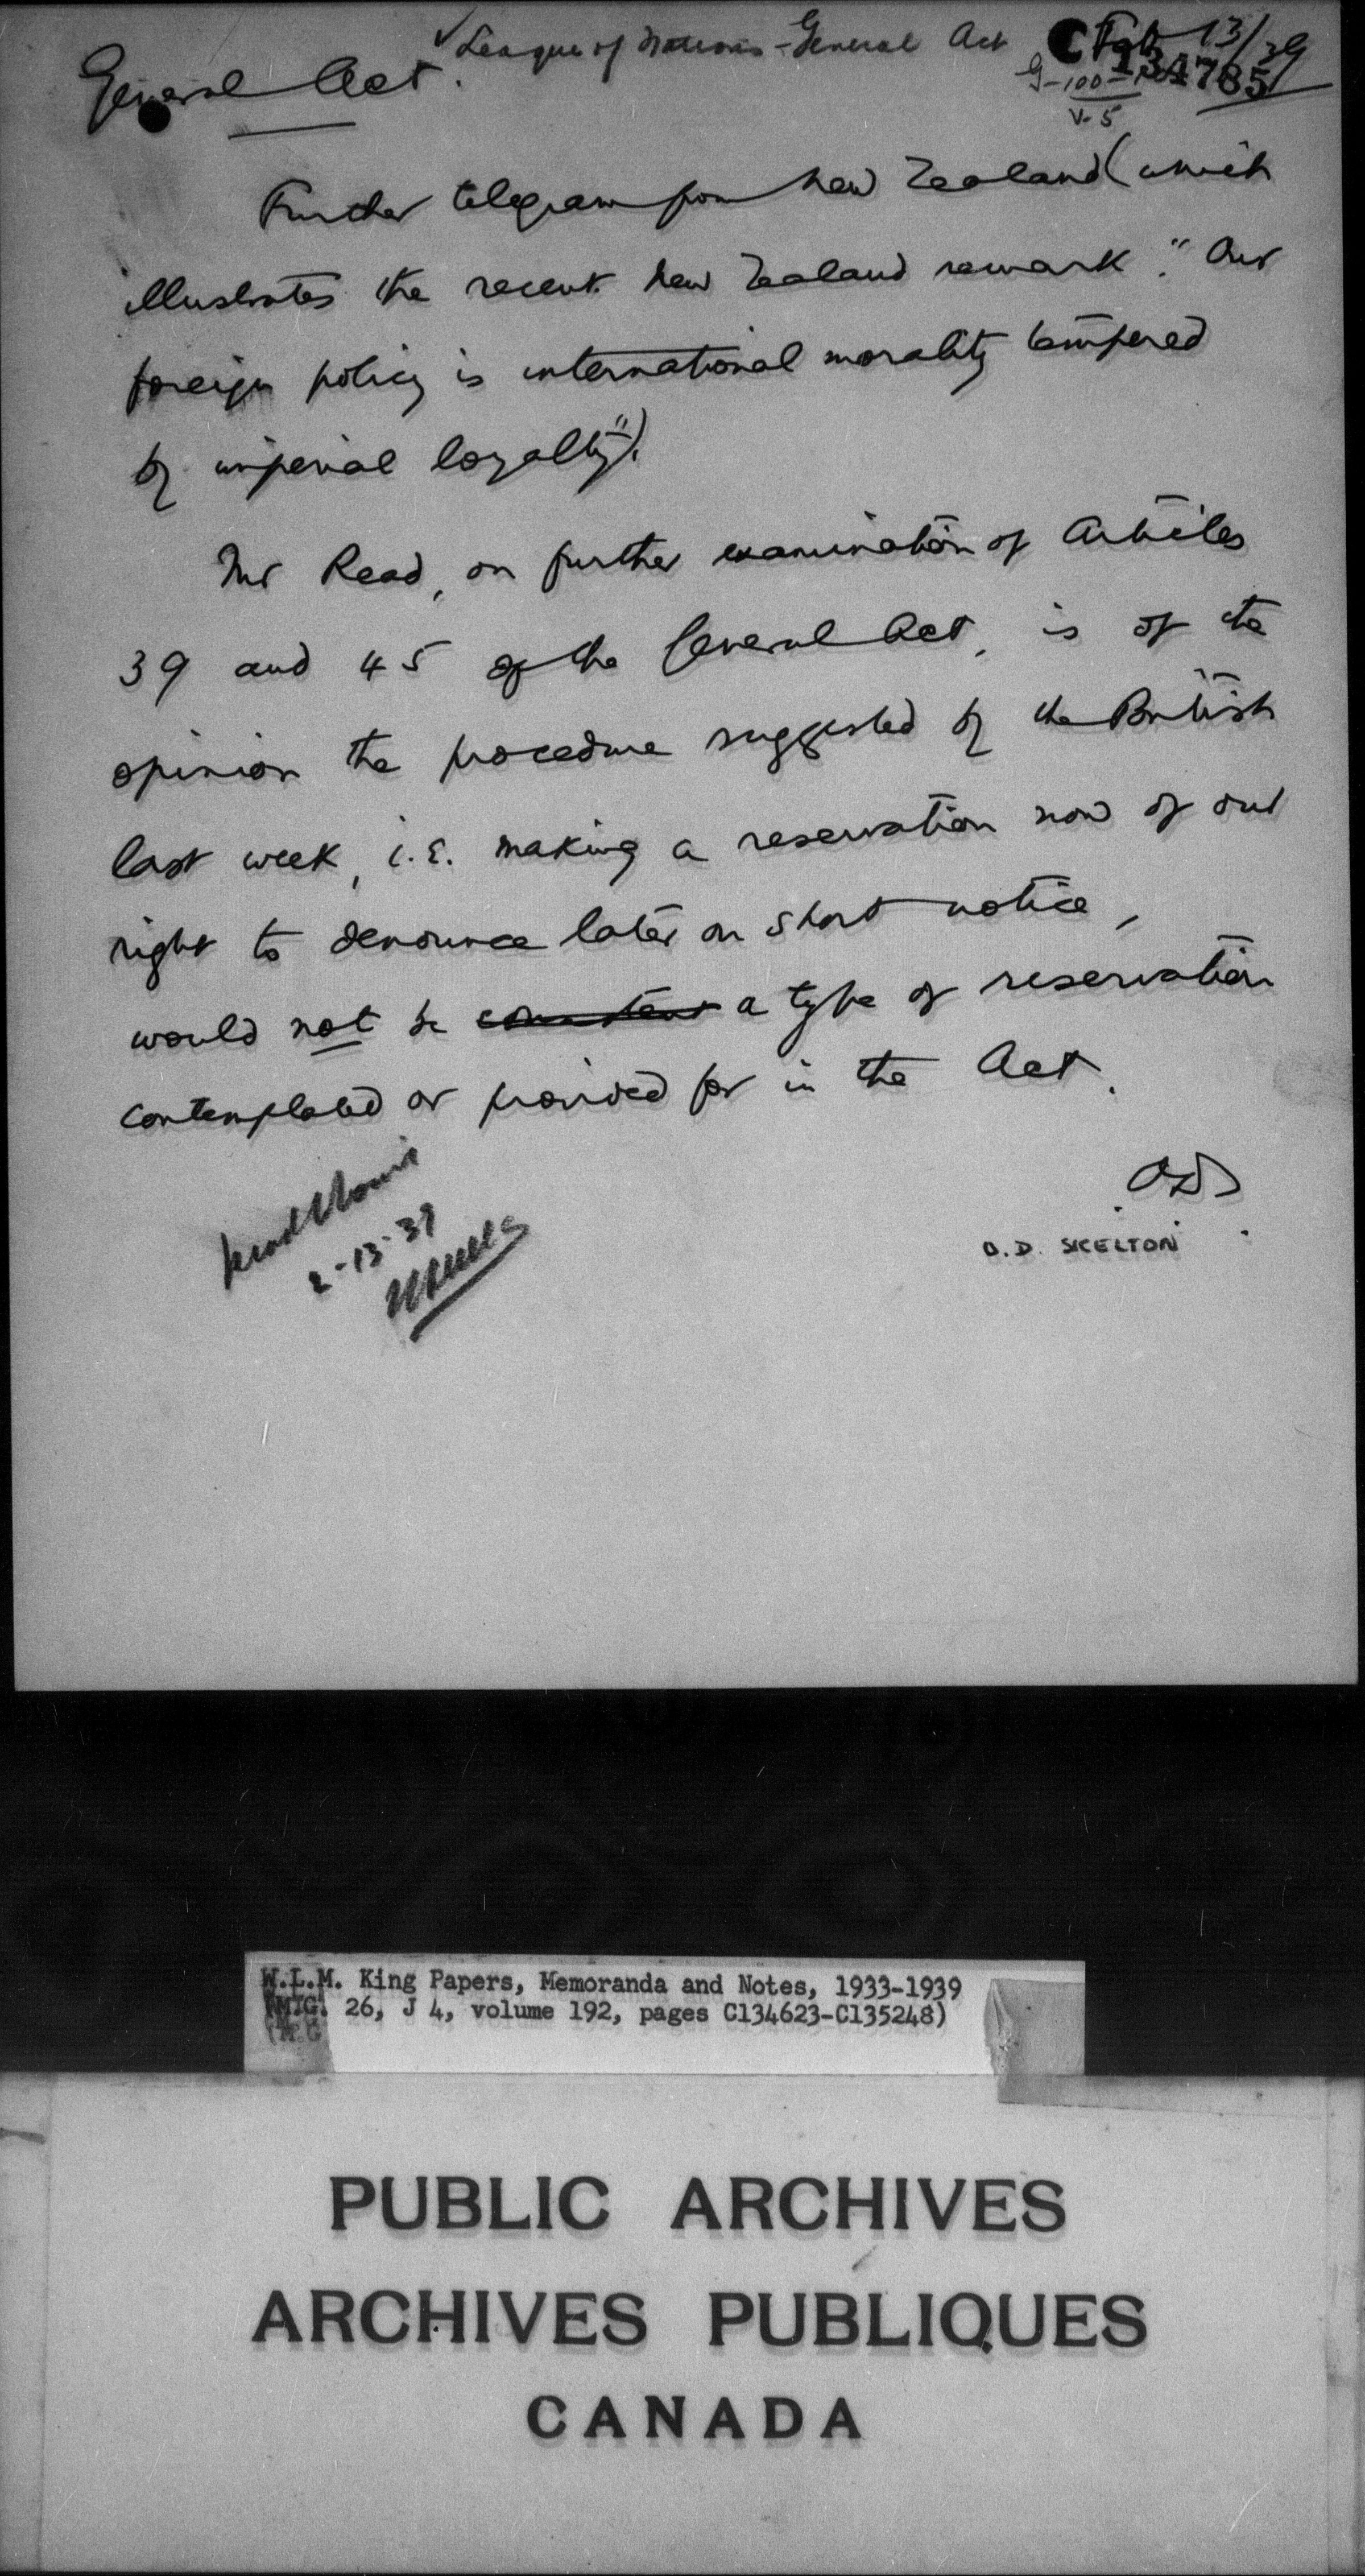 ✓ League of Nations - General Act
General Act.
Feb 13/39
C134785
G-100-
V-5
Further telegram from New Zealand (which
illustrates the recent New Zealand remark: "Our
foreign policy is international morality tempered
by imperial loyalty").
Mr Read, on further examination of Articles
39 and 45 of the General Act, is of the
opinion the procedure suggested by the British
last week, i.e. making a reservation now of our
right to denounce later on short notice,
would not be a type of reservation
contemplated or provided for in the Act.
ODS
O. D. SKELTON
2-13-39
W.L.M. King Papers, Memoranda and Notes, 1933-1939
(M.G. 26, J 4, volume 192, pages C134623-C135248)
PUBLIC ARCHIVES
ARCHIVES PUBLIQUES
CANADA